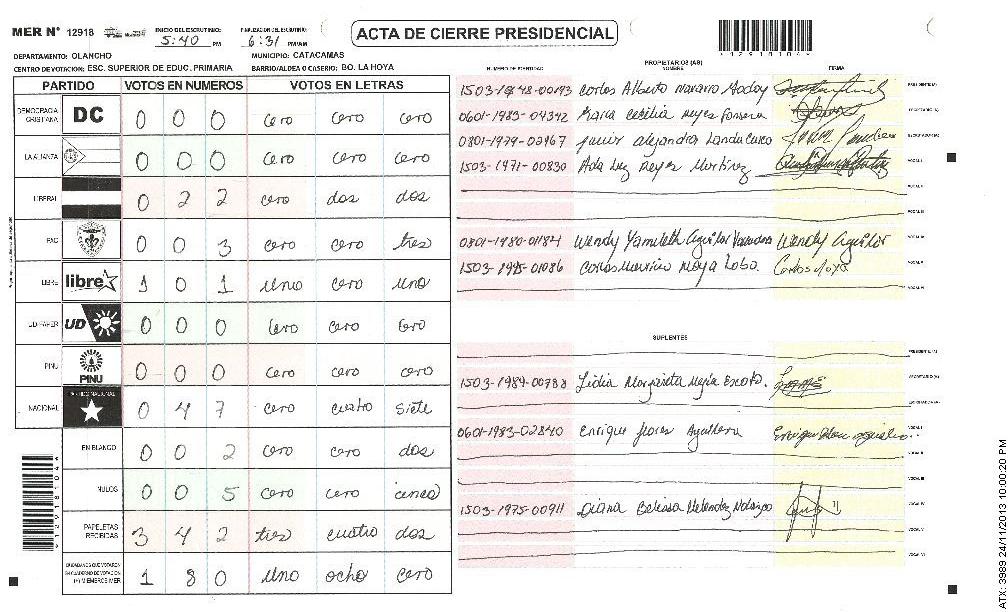 MER N° 12918
INICIO DEL ESCRUTINIO: 5:40 PM
FINALIZACION DEL ESCRUTINIO: 6:31 PM/AM
ACTA DE CIERRE PRESIDENCIAL
DEPARTAMENTO: OLANCHO
MUNICIPIO: CATACAMAS
CENTRO DE VOTACION: ESC. SUPERIOR DE EDUC. PRIMARIA
BARRIO/ALDEA O CASERIO: BO. LA HOYA
PARTIDO VOTOS EN NUMEROS VOTOS EN LETRAS
DEMOCRACIA CRISTIANA DC 0 0 0 cero cero cero
LA ALIANZA 0 0 0 cero cero cero
LIBERAL 0 2 2 cero dos dos
PAC 0 0 3 cero cero tres
LIBRE libre 1 0 1 uno cero uno
UD-FAPER UD 0 0 0 cero cero cero
PINU PINU 0 0 0 cero cero cero
NACIONAL PARTIDO NACIONAL 0 4 7 cero cuatro siete
EN BLANCO 0 0 2 cero cero dos
NULOS 0 0 5 cero cero cinco
PAPELETAS RECIBIDAS 3 4 2 tres cuatro dos
CIUDADANOS QUE VOTARON EN CUADERNO DE VOTACION (+) MIEMBROS MER 1 8 0 uno ocho cero
PROPIETARIOS (AS)
NUMERO DE IDENTIDAD NOMBRE FIRMA
Carlos Alberto Navarro PRESIDENTE (A)
0601-1983-04342 Maria Cecilia Reyes Fonseca SECRETARIO (A)
0801-1979-02967 Junir alejandra Landa ESCRUTADOR (A)
1503-1971-00830 Ada Luz Reyes Martinez VOCAL I
VOCAL II
VOCAL III
0801-1980-01184 Wendy Yamileth Aguilar Wendy Aguilar VOCAL IV
Carlos Mauricio Moya Lobo. Carlos Moya VOCAL V
VOCAL VI
SUPLENTES
PRESIDENTE (A)
1503-1989-00788 Lidia Margarita Mejia Escoto. SECRETARIO (A)
ESCRUTADOR (A)
0601-1983-02840 Enrique flores Aguilera VOCAL I
VOCAL II
VOCAL III
1503-1975-00911 Diana Belissa Melendez VOCAL IV
VOCAL V
VOCAL VI
ATX: 3989 24/11/2013 10:00:20 PM